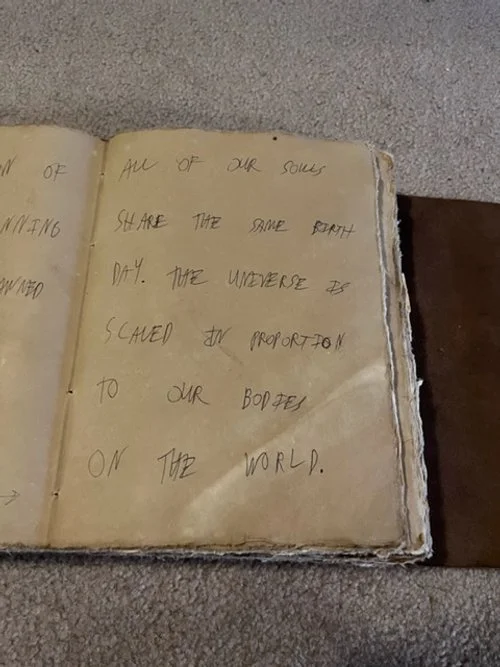 OF
NNING
WNED
ALL OF OUR SOULS
SHARE THE SAME BIRTH
DAY. THE UNIVERSE IS
SCALED IN PROPORTION
TO OUR BODIES
ON THE WORLD.